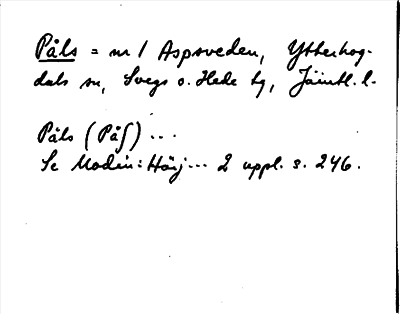 Påls = nr 1 Aspsveden, Ytterhog-
dals sn, Svegs o. Hede tg, Jämtl. l.
Påls (Påſ) ...
Se Modin: Härj... 2 uppl. s. 246.